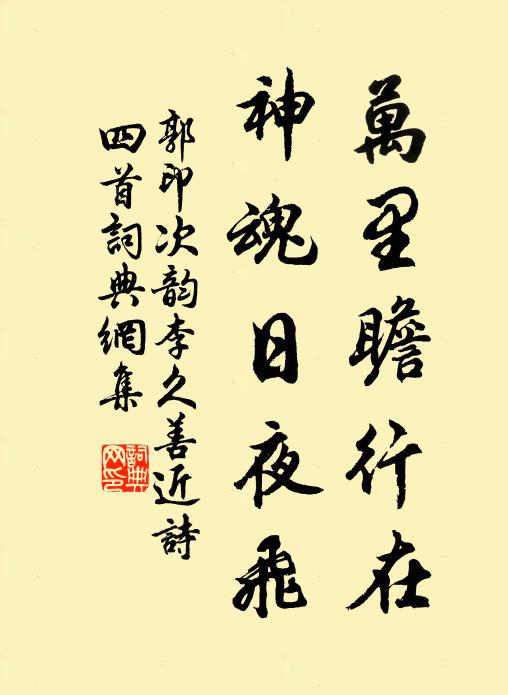 萬里瞻行在
神魂日夜飛
郭印次韵李久善近詩
四首詞典網集
詞典
网印